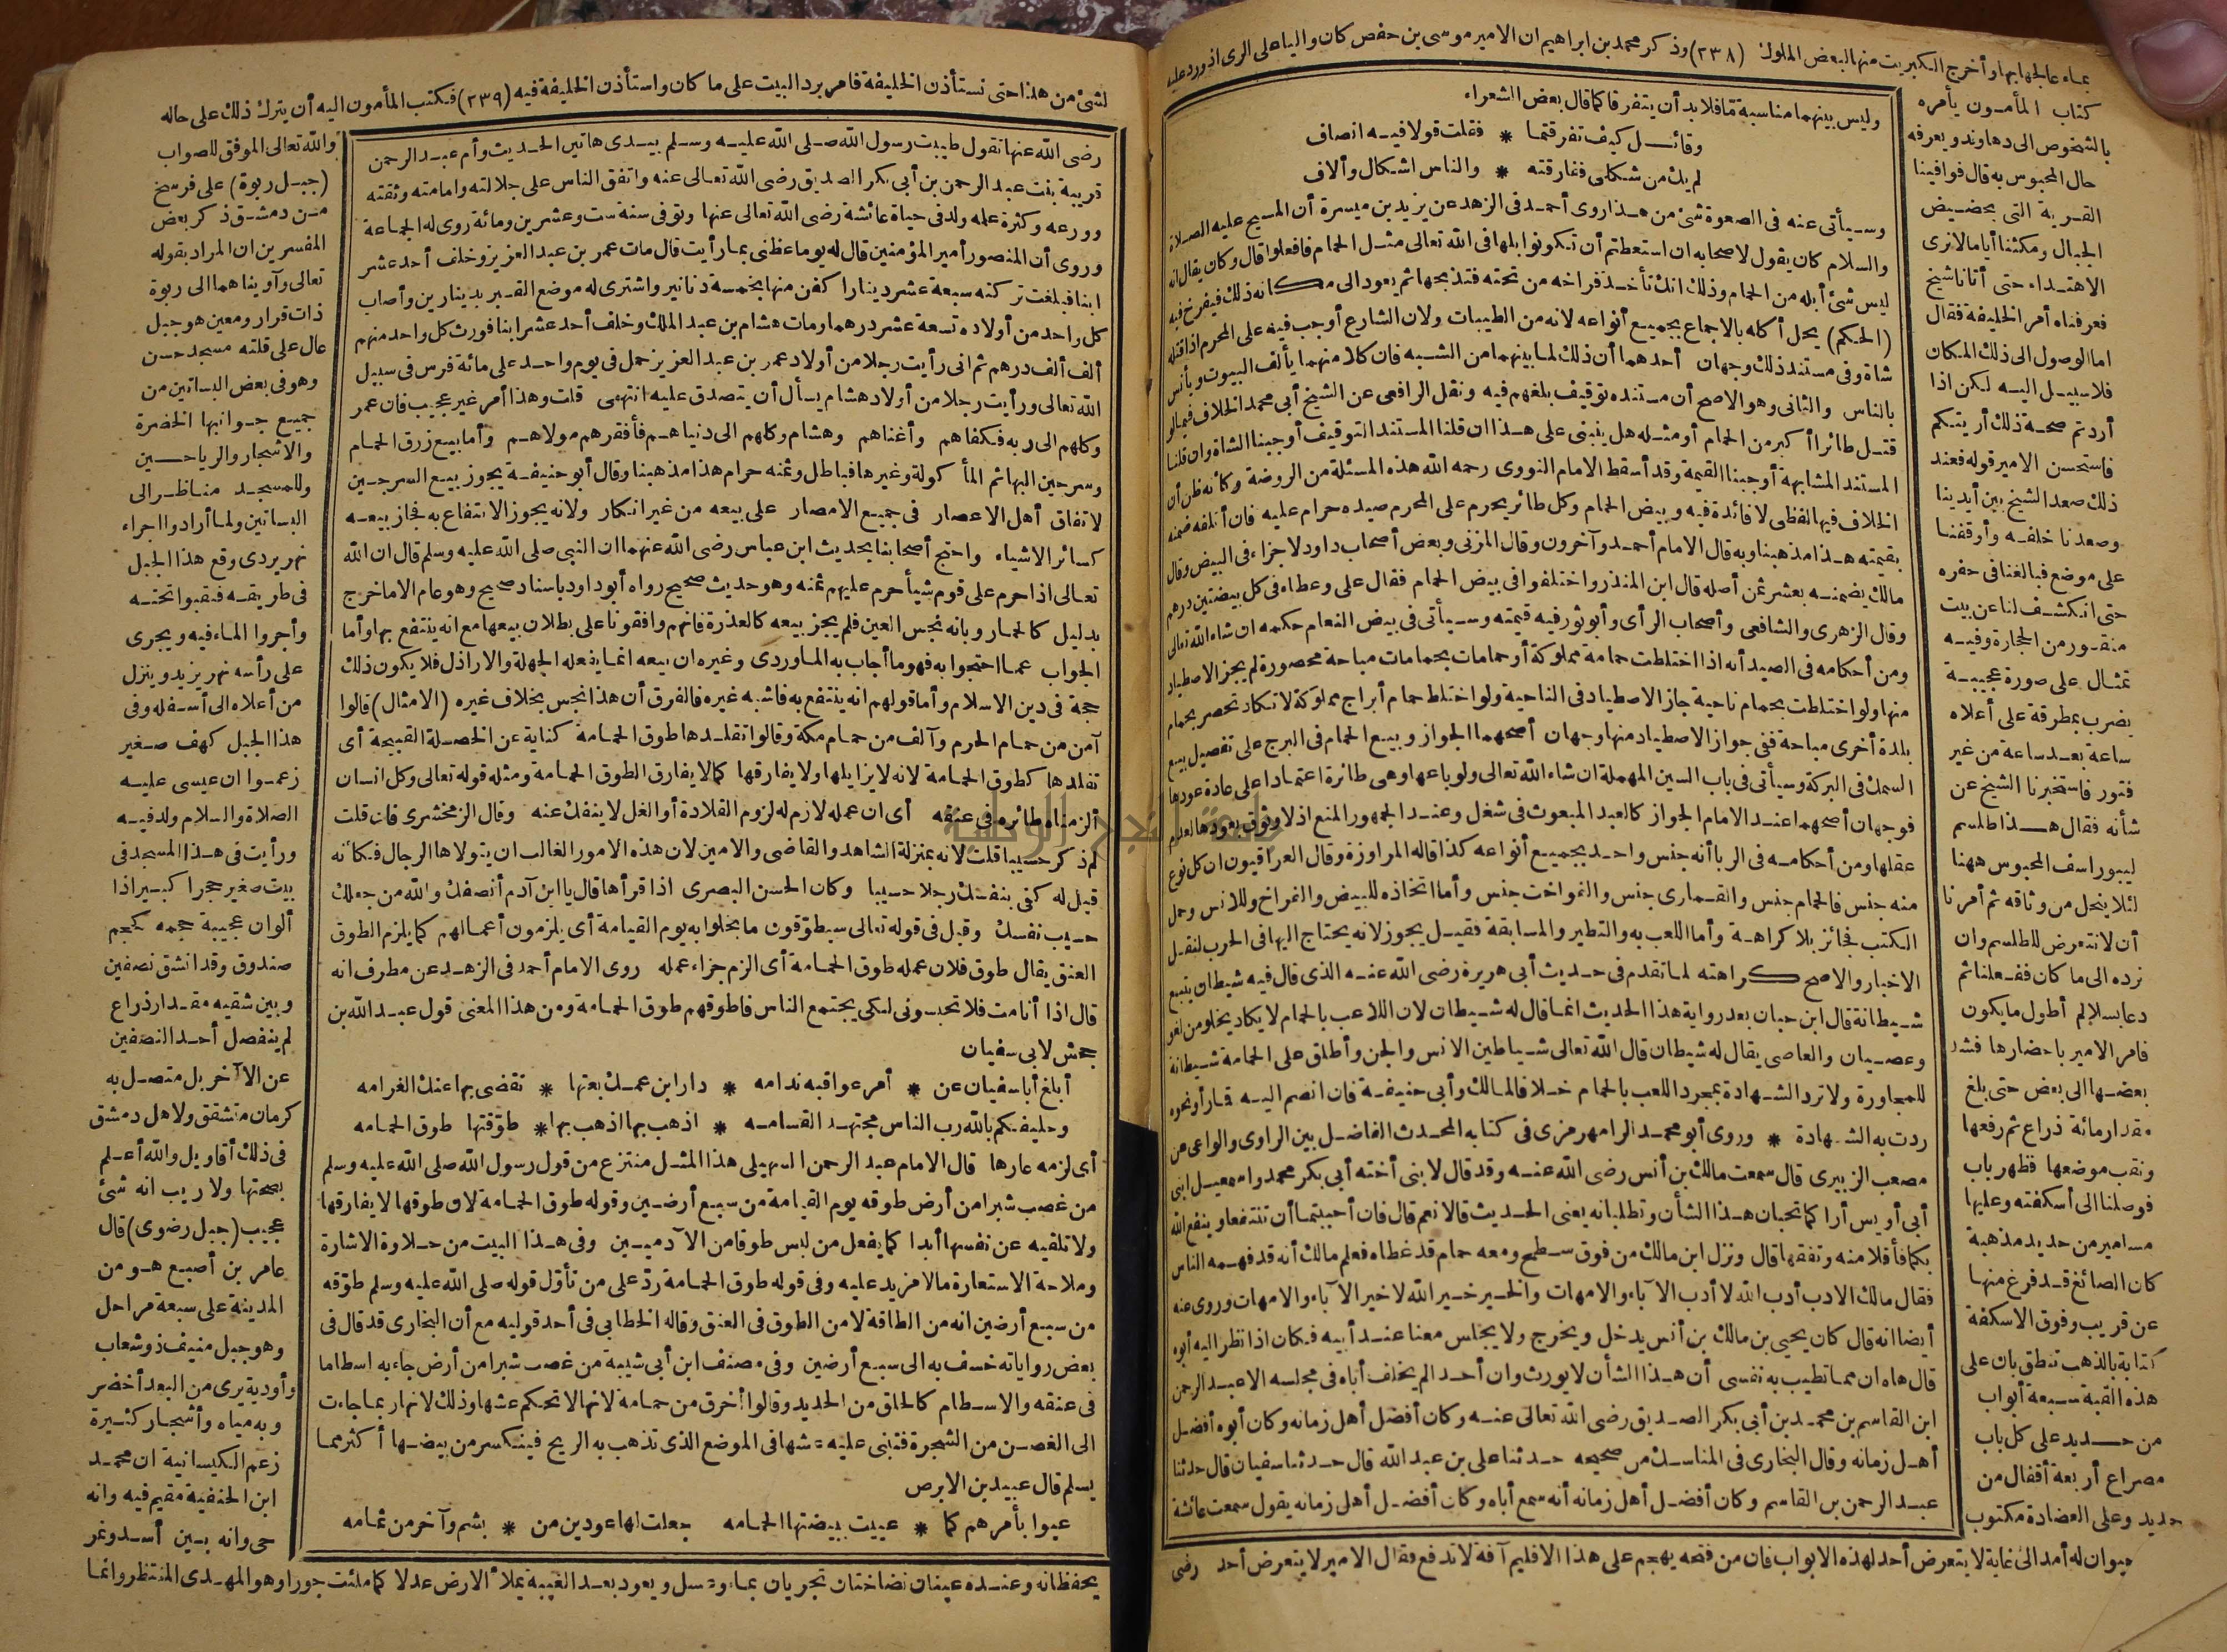 بماء عالجها بها وأخرج الكبريت منها لبعض الملوك (٢٣٨) وذكر محمد بن ابراهيم ان الامير موسى بن حفص كان واليا على الرى اذ ورد عليه
كتاب المأمون يأمره
بالشخوص الى دماوند ويعرفه
حال المحبوس به قال فوافينا
القرية التى بحضيض
الجبال ومكثنا أياما لا نرى
الاهتداء حتى أتانا شيخ
فعرفناه أمر الخليفة فقال
اما الوصول الى ذلك المكان
فلا سبيل اليه لكن اذا
أردتم صحة ذلك أريتكم
فاستحسن الامير قوله فعند
ذلك صعد الشيخ بين أيدينا
وصعدنا خلفه وأوقفنا
على موضع فبالغنا فى حفره
حتى انكشف لنا عن بيت
منقور من الحجارة وفيه
تمثال على صورة عجيبة
يضرب بمطرقة على أعلاه
ساعة بعد ساعة من غير
فتور فاستخبرنا الشيخ عن
شأنه فقال هذا طلسم
ليبوراسف المحبوس ههنا
لئلا ينحل من وثاقه ثم أمرنا
أن لا نتعرض للطلسم وان
نرده الى ما كان ففعلنا ثم
دعا بسلالم أطول ما يكون
فامر الامير باحضارها فشد
بعضها الى بعض حتى بلغ
مقدار مائة ذراع ثم رفعها
ونقب موضعها فظهر باب
فوصلنا الى أسكفته وعليها
مسامير من حديد مذهبة
كان الصائغ قد فرغ منها
عن قريب وفوق الاسكفة
كتابة بالذهب تنطق بان على
هذه القبة سبعة أبواب
من حديد على كل باب
مصراع أربعة أقفال من
حديد وعلى العضادة مكتوب
وليس بينهما مناسبة تما فلا بد أن يتفرقا كما قال بعض الشعراء
وقائل كيف تفرقتما * فقلت قولا فيه انصاف
لم يك من شكلى ففارقته * والناس اشكال وألاف
وسيأتى عنه فى الصعوة شئ من هذا روى أحمد فى الزهد عن يزيد بن ميسرة أن المسيح عليه الصلاة
والسلام كان يقول لاصحابه ان استطعتم أن تكونوا بلها فى الله تعالى مثل الحمام فافعلوا قال وكان يقال انه
ليس شئ أبله من الحمام وذلك انك تأخذ فراخه من تحته فتذبحها ثم يعود الى مكانه ذلك فيفرخ فيه
(الحكم) يحل أكله بالاجماع بجميع أنواعه لانه من الطيبات ولان الشارع أوجب فيه على المحرم اذا قتله
شاة وفى مستند ذلك وجهان أحدهما أن ذلك لما بينهما من الشبه فان كلا منهما يألف البيوت ويأنس
بالناس والثانى وهو الاصح أن مستنده توقيف بلغهم فيه ونقل الرافعى عن الشيخ أبى محمد الخلاف فيما لو
قتل طائرا أكبر من الحمام أو مثله هل ينبنى على هذا ان قلنا المستند التوقيف أوجبنا الشاة وان قلنا
المستند المشابهة أوجبنا القيمة وقد أسقط الامام النووى رحمه الله هذه المسئلة من الروضة وكأنه ظن أن
الخلاف فيها لفظى لا فائدة فيه وبيض الحمام وكل طائر يحرم على المحرم صيده حرام عليه فان أتلفه ضمنه
بقيمته هذا مذهبنا وبه قال الامام أحمد وآخرون وقال المزنى وبعض أصحاب داود لا جزاء فى البيض وقال
مالك يضمنه بعشر ثمن أصله قال ابن المنذر واختلفوا فى بيض الحمام فقال على وعطاء فى كل بيضتين درهم
وقال الزهرى والشافعى وأصحاب الرأى وأبو ثور فيه قيمته وسيأتى فى بيض النعام حكمه ان شاء الله تعالى
ومن أحكامه فى الصيد أنه اذا اختلطت حمامة مملوكة أو حمامات بحمامات مباحة محصورة لم يجز الاصطياد
منها ولو اختلطت بحمام ناحية جاز الاصطياد فى الناحية ولو اختلط حمام أبراج مملوكة لا تكاد تحصر بحمام
بلدة أخرى مباحة ففى جواز الاصطياد منها وجهان أصحهما الجواز وبيع الحمام فى البرج على تفصيل بيع
السمك فى البركة وسيأتى فى باب السين المهملة ان شاء الله تعالى ولو باعها وهى طائرة اعتمادا على عادة عودها
فوجهان أصحهما عند الامام الجواز كالعبد المبعوث فى شغل وعند الجمهور المنع اذ لا وثوق بعودها لعدم
عقلها ومن أحكامه فى الربا أنه جنس واحد بجميع أنواعه كذا قاله المراوزة وقال العراقيون ان كل نوع
منه جنس فالحمام جنس والقمارى جنس والفواخت جنس وأما اتخاذه للبيض والفراخ وللانس وحمل
الكتب فجائز بلا كراهة وأما اللعب به والتطير والمسابقة فقيل يجوز لانه يحتاج اليها فى الحرب لنقل
الاخبار والاصح كراهته لما تقدم فى حديث أبى هريرة رضى الله عنه الذى قال فيه شيطان يتبع
شيطانة قال ابن حبان بعد رواية هذا الحديث انما قال له شيطان لان اللاعب بالحمام لا يكاد يخلو من لغو
وعصيان والعاصى يقال له شيطان قال الله تعالى شياطين الانس والجن وأطلق على الحمامة شيطانة
للمجاورة ولا ترد الشهادة بمجرد اللعب بالحمام خلافا لمالك وأبى حنيفة فان انضم اليه قمار أو نحوه
ردت به الشهادة * وروى أبو محمد الرامهرمزى فى كتابه المحدث الفاضل بين الراوى والواعى عن
مصعب الزبيرى قال سمعت مالك بن أنس رضى الله عنه وقد قال لابنى أخته أبى بكر محمد واسمعيل ابنى
أبى أويس أرا كما تحبان هذا الشأن وتطلبانه يعنى الحديث قالا نعم قال فان أحببتما أن تنتفعا وينفع الله
بكما فأقلا منه وتفقها قال ونزل ابن مالك من فوق سطح ومعه حمام قد غطاه فعلم مالك أنه قد فهمه الناس
فقال مالك الادب أدب الله لا أدب الآباء والامهات والخير خير الله لا خير الآباء والامهات وروى عنه
أيضا انه قال كان يحيى بن مالك بن أنس يدخل ويخرج ولا يجلس معنا عند أبيه فكان اذا نظر اليه أبوه
قال هاه ان مما تطيب به نفسى أن هذا الشأن لا يورث وان أحدا لم يخلف أباه فى مجلسه الا عبد الرحمن
ابن القاسم بن محمد بن أبى بكر الصديق رضى الله تعالى عنه وكان أفضل أهل زمانه وكان أبوه أفضل
أهل زمانه وقال البخارى فى المناسك من صحيحه حدثنا على بن عبد الله قال حدثنا سفيان قال حدثنا
عبد الرحمن بن القاسم وكان أفضل أهل زمانه أنه سمع أباه وكان أفضل أهل زمانه يقول سمعت عائشة
حيوان له أمد الى غاية لا يتعرض أحد لهذه الابواب فان من فتحه يهجم على هذا الاقليم آفة لا تدفع فقال الامير لا يتعرض أحد رضى
لشئ من هذا حتى نستأذن الخليفة فامر برد البيت على ما كان واستأذن الخليفة فيه (٢٣٩) فكتب المأمون اليه أن يترك ذلك على حاله
رضى الله عنها تقول طيبت رسول الله صلى الله عليه وسلم بيدى هاتين الحديث وأم عبد الرحمن
قريبة بنت عبد الرحمن بن أبى بكر الصديق رضى الله تعالى عنه واتفق الناس على جلالته وامامته وثقته
وورعه وكثرة علمه ولد فى حياة عائشة رضى الله تعالى عنها وتوفى سنة ست وعشرين ومائة روى له الجماعة
وروى أن المنصور أمير المؤمنين قال له يوما عظنى بما رأيت قال مات عمر بن عبد العزيز وخلف أحد عشر
ابنا فبلغت تركته سبعة عشر دينارا كفن منها بخمسة دنانير واشترى له موضع القبر بدينارين وأصاب
كل واحد من أولاده تسعة عشر درهما ومات هشام بن عبد الملك وخلف أحد عشر ابنا فورث كل واحد منهم
ألف ألف درهم ثم انى رأيت رجلا من أولاد عمر بن عبد العزيز حمل فى يوم واحد على مائة فرس فى سبيل
الله تعالى ورأيت رجلا من أولاد هشام يسأل أن يتصدق عليه انتهى قلت وهذا أمر غير عجيب فان عمر
وكلهم الى ربه فكفاهم وأغناهم وهشام وكلهم الى دنياهم فأفقرهم مولاهم وأما بيع زرق الحمام
وسرجين البهائم المأكولة وغيرها فباطل وثمنه حرام هذا مذهبنا وقال أبو حنيفة يجوز بيع السرجين
لاتفاق أهل الاعصار فى جميع الامصار على بيعه من غير انكار ولانه يجوز الانتفاع به فجاز بيعه
كسائر الاشياء واحتج أصحابنا بحديث ابن عباس رضى الله عنهما ان النبى صلى الله عليه وسلم قال ان الله
تعالى اذا حرم على قوم شيأ حرم عليهم ثمنه وهو حديث صحيح رواه أبو داود باسناد صحيح وهو عام الا ما خرج
بدليل كالحمار وبانه نجس العين فلم يجز بيعه كالعذرة فانهم وافقونا على بطلان بيعها مع انه ينتفع بها وأما
الجواب عما احتجوا به فهو ما أجاب به الماوردى وغيره ان بيعه انما يفعله الجهلة والاراذل فلا يكون ذلك
حجة فى دين الاسلام وأما قولهم انه ينتفع به فاشبه غيره فالفرق أن هذا نجس بخلاف غيره (الامثال) قالوا
آمن من حمام الحرم وآلف من حمام مكة وقالوا تقلدها طوق الحمامة كناية عن الخصلة القبيحة أى
تقلدها كطوق الحمامة لانه لا يزايلها ولا يفارقها كما لا يفارق الطوق الحمامة ومثله قوله تعالى وكل انسان
ألزمناه طائره فى عنقه أى ان عمله لازم له لزوم القلادة أو الغل لا ينفك عنه وقال الزمخشرى فان قلت
لم ذكر حسيبا قلت لانه بمنزلة الشاهد والقاضى والامين لان هذه الامور الغالب ان يتولاها الرجال فكأنه
قيل له كفى بنفسك رجلا حسيبا وكان الحسن البصرى اذا قرأها قال يا ابن آدم أنصفك والله من جعلك
حسيب نفسك وقيل فى قوله تعالى سيطوّقون ما بخلوا به يوم القيامة أى يلزمون أعمالهم كما يلزم الطوق
العنق يقال طوق فلان عمله طوق الحمامة أى الزم جزاء عمله روى الامام أحمد فى الزهد عن مطرف انه
قال اذا أنا مت فلا تحبسونى لكى يجتمع الناس فاطوقهم طوق الحمامة ومن هذا المعنى قول عبد الله بن
جحش لابى سفيان
أبلغ أبا سفيان عن * أمر عواقبه ندامه * دار ابن عمك بعتها * تقضى بها عنك الغرامه
وحليفكم بالله رب الناس مجتهد القسامه * اذهب بها اذهب بها * طوّقتها طوق الحمامه
أى لزمه عارها قال الامام عبد الرحمن السهيلى هذا المثل منتزع من قول رسول الله صلى الله عليه وسلم
من غصب شبرا من أرض طوقه يوم القيامة من سبع أرضين وقوله طوق الحمامة لان طوقها لا يفارقها
ولا تلقيه عن نفسها أبدا كما يفعل من لبس طوقا من الآدميين وفى هذا البيت من حلاوة الاشارة
وملاحة الاستعارة ما لا مزيد عليه وفى قوله طوق الحمامة ردّ على من تأوّل قوله صلى الله عليه وسلم طوّقه
من سبع أرضين انه من الطاقة لا من الطوق فى العنق وقاله الخطابى فى أحد قوليه مع أن البخارى قد قال فى
بعض رواياته خسف به الى سبع أرضين وفى مصنف ابن أبى شيبة من غصب شبرا من أرض جاء به اسطاما
فى عنقه والاسطام كالحلق من الحديد وقالوا أخرق من حمامة لانها لا تحكم عشها وذلك لانها ربما جاءت
الى الغصن من الشجرة فتبنى عليه عشها فى الموضع الذى تذهب به الريح فينكسر من بيضها أكثر مما
يسلم قال عبيد بن الابرص
عيوا بأمرهم كما * عييت ببيضتها الحمامه جعلت لها عودين من * بشم وآخر من ثمامه
والله تعالى الموفق للصواب
(جبل ربوة) على فرسخ
من دمشق ذكر بعض
المفسرين ان المراد بقوله
تعالى وآويناهما الى ربوة
ذات قرار ومعين هو جبل
عال على قلته مسجد حسن
وهو فى بعض البساتين من
جميع جوانبها الخضرة
والاشجار والرياحين
وللمسجد مناظر الى
البساتين ولما أرادوا اجراء
نهر يردى وقع هذا الجبل
فى طريقه فنقبوا تحته
وأجروا الماء فيه ويجرى
على رأسه نهر يزيد وينزل
من أعلاه الى أسفله وفى
هذا الجبل كهف صغير
زعموا ان عيسى عليه
الصلاة والسلام ولد فيه
ورأيت فى هذا المسجد فى
بيت صغير حجرا كبيرا ذا
ألوان عجيبة حجمه كحجم
صندوق وقد انشق نصفين
وبين شقيه مقدار ذراع
لم ينفصل أحد النصفين
عن الآخر بل متصل به
كرمان متشقق ولاهل دمشق
فى ذلك أقاويل والله أعلم
بصحتها ولا ريب انه شئ
عجيب (جبل رضوى) قال
عامر بن أصبع هو من
المدينة على سبعة مراحل
وهو جبل منيف ذو شعاب
وأودية يرى من البعد أخضر
وبه مياه وأشجار كثيرة
زعم الكيسانية ان محمد
ابن الحنفية مقيم فيه وانه
حى وانه بين أسد ونمر
يحفظانه وعنده عينان نضاختان تجريان بماء وعسل ويعود بعد الغيبة يملأ الارض عدلا كما ملئت جورا وهو المهدى المنتظر وانما